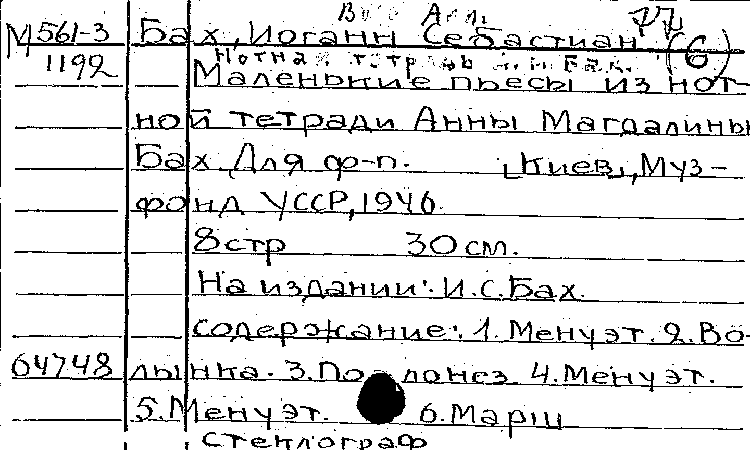 М 561-3 Бах, Иоганн Себастиан 77 (6)
1192 Нотная тетрадь А. М. Бах.
Маленькие пьесы из нот-
ной тетради Анны Магдалины
Бах. Для ф-п. [Киев], Муз-
фонд УССР, 1946.
8 стр 30 см.
На издании: И.С.Бах.
Содержание: 1. Менуэт. 2. Во-
64748 лынка. 3. Полонез 4. Менуэт.
5. Менуэт. 6. Марш
Стеклограф